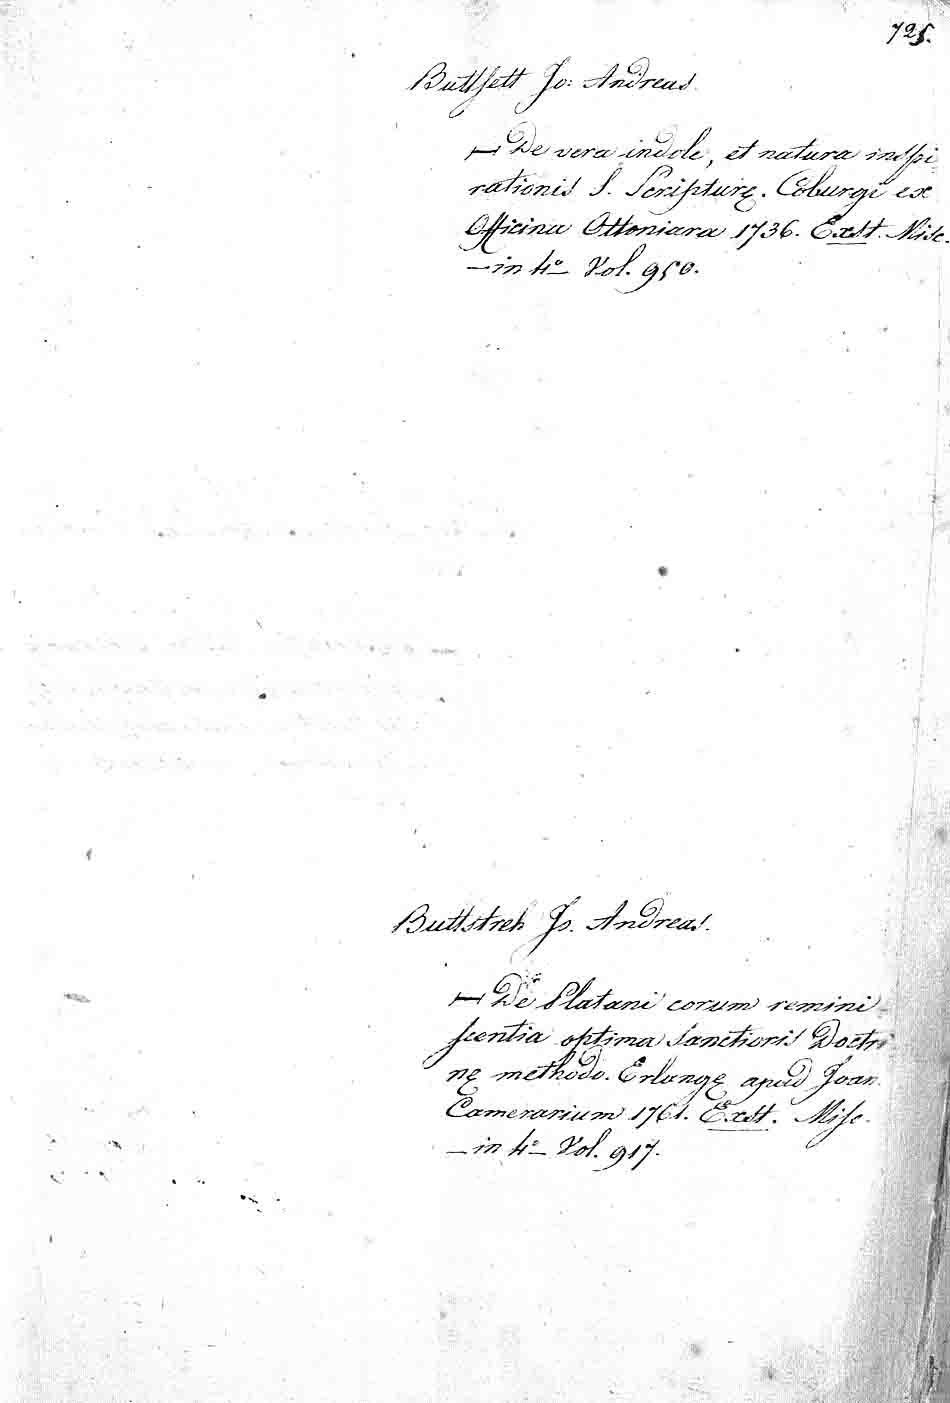 725.
Buttsett Jo: Andreas.
— De vera indole, et natura inspi
rationis S. Scripturę. Coburgi ex
Officina Ottoniara 1736. Exst. Misc.
— in 4º Vol. 950.
Buttstreh Jo. Andreas.
— De Platani corum remini
scentia optima sanctioris Doctri
nę methodo. Erlangę apud Joan.
Camerarium 1761. Exst. Misc.
— in 4º Vol. 917.